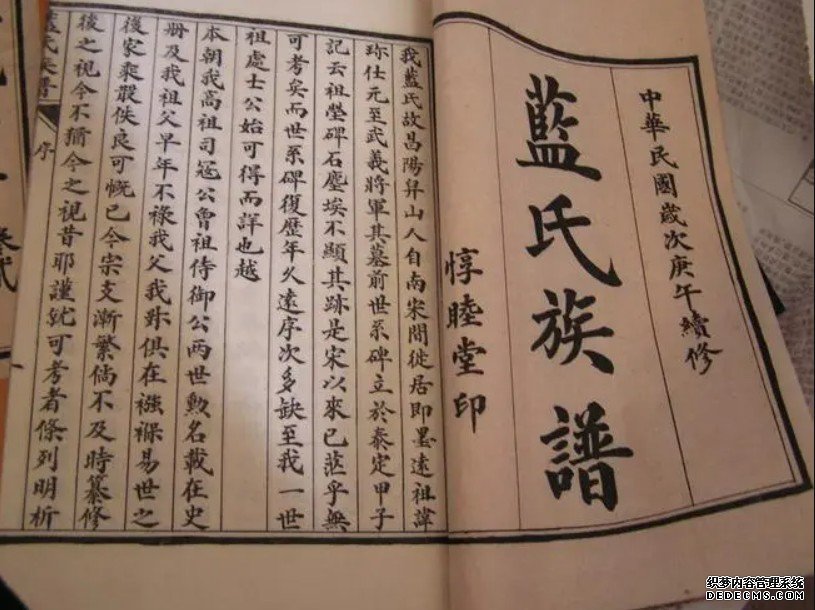 中華民國歲次庚午續修
藍氏族譜
惇睦堂印
我藍氏故昌陽舁山人自南宋間徙居即墨遠祖諱
珎仕元至武義將軍其墓前世系碑立於泰定甲子
記云祖塋碑石塵埃不顯其跡是宋以來已茫乎無
可考矣而世系碑復歷年久遠序次多缺至我一世
祖處士公始可得而詳也越
本朝我高祖司冦公曾祖侍御公兩世勲名載在史
册及我祖父早年不禄我父我叔俱在襁褓易世之
後家乘散佚良可慨已今宗支漸繁倘不及時纂修
後之視今不猶今之視昔耶謹就可考者條列明析
藍氏族譜 序
织梦内容管理系统
DEDECMS.COM